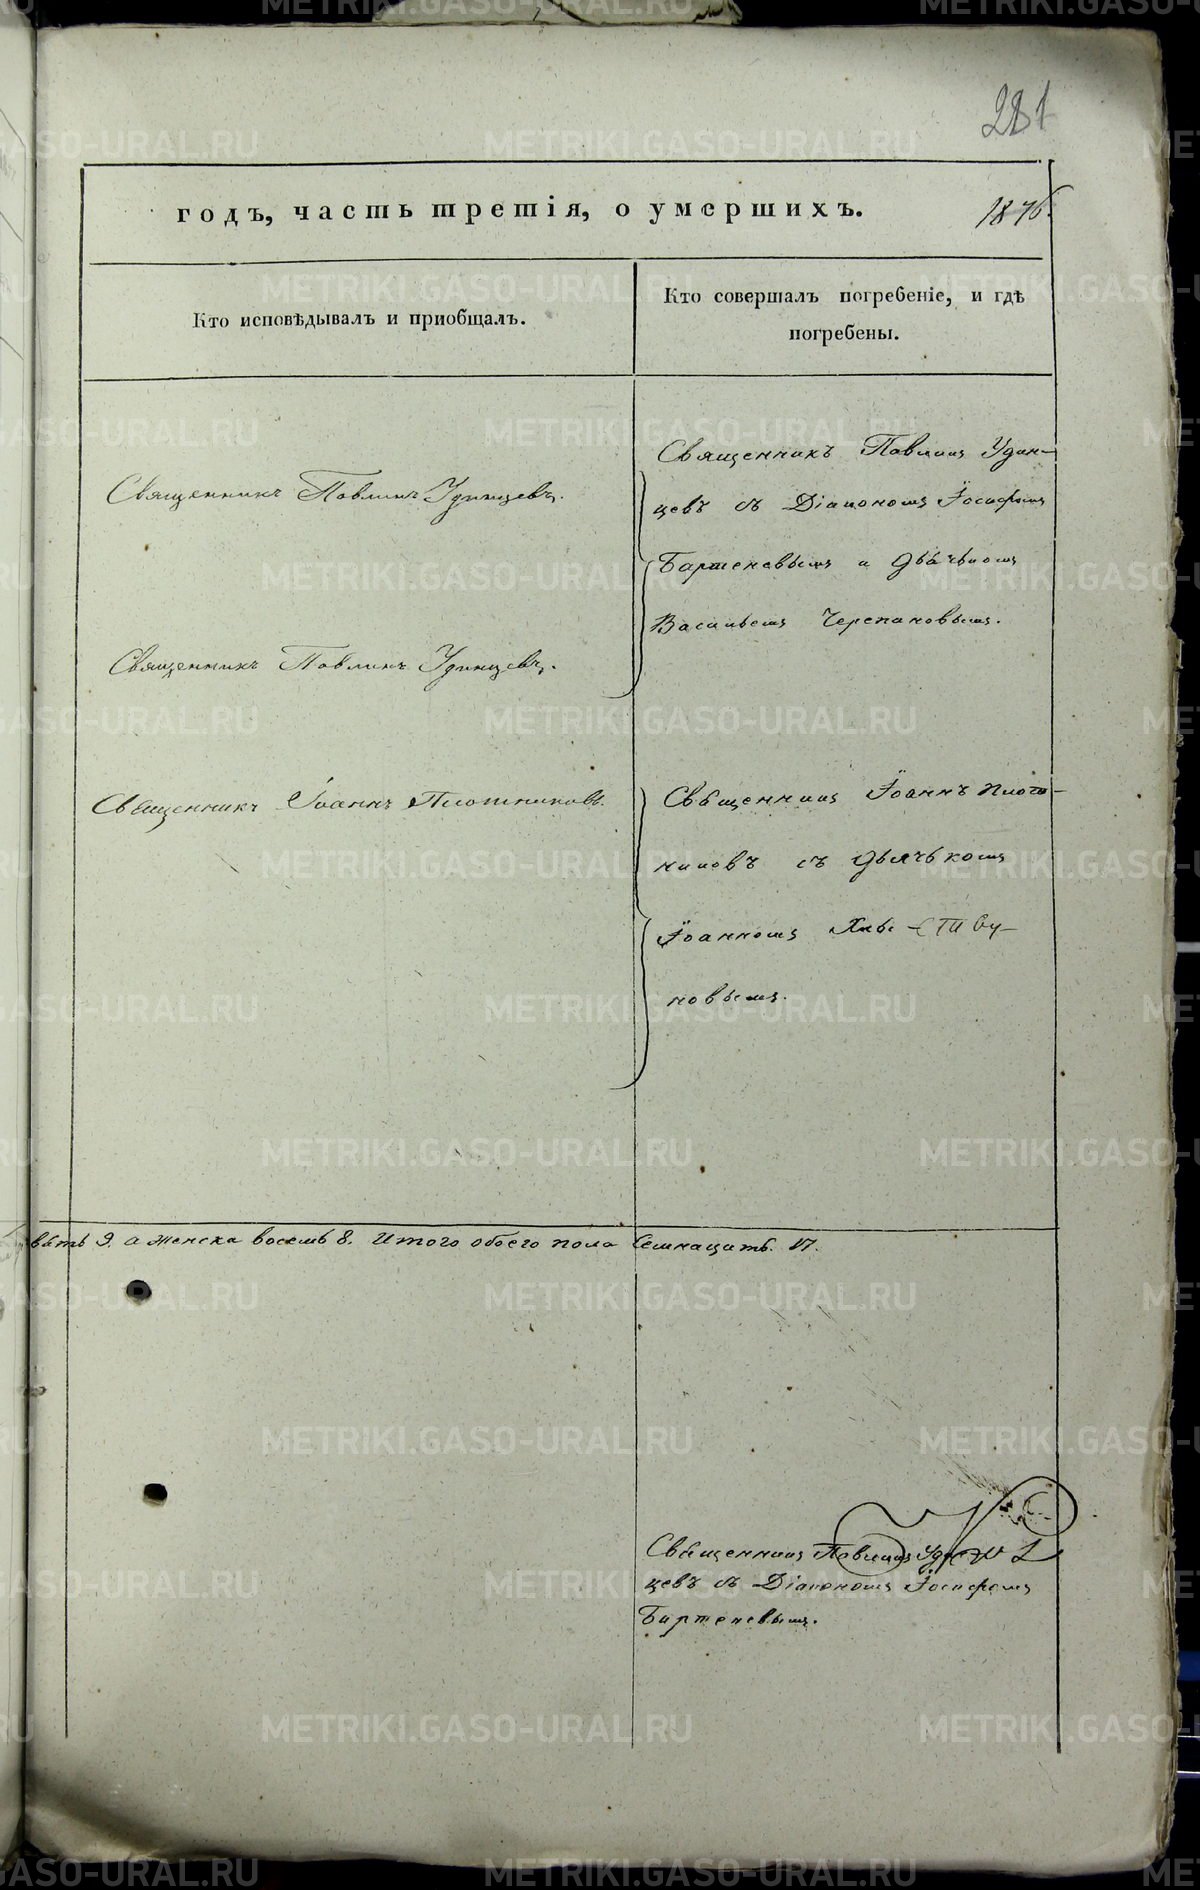 281
годъ, часть третія, о умершихъ.
1876.
Кто исповѣдывалъ и приобщалъ.
Кто совершалъ погребеніе, и гдѣ
погребены.
Священникъ Павлинъ Удинцевъ.
Священникъ Павлинъ Удин-
цевъ съ Діакономъ Іосифомъ
Бартеневымъ и дьячькомъ
Васильемъ Черепановымъ.
Священникъ Павлинъ Удинцевъ.
Священникъ Іоаннъ Плотниковъ.
Священникъ Іоаннъ Плот-
никовъ съ дьячькомъ
Іоанномъ
новымъ.
вять 9. а женска восемь 8. Итого обоего пола семнацать. 17.
Священникъ Павлинъ Удин-
цевъ съ Діакономъ Іосифомъ
Бартеневымъ.
METRIKI.GASO-URAL.RU